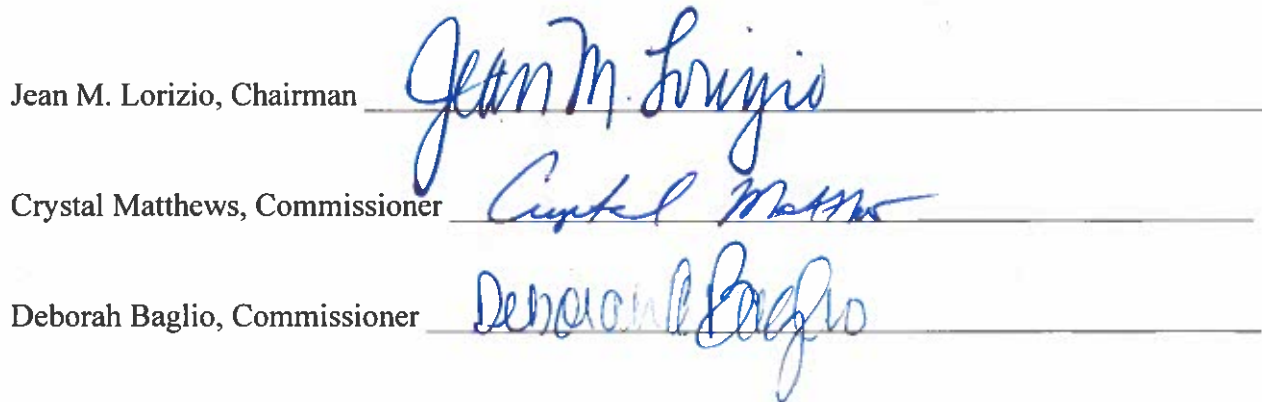 Jean M. Lorizio, Chairman Jean M. Lorizio
Crystal Matthews, Commissioner Crystal Matthews
Deborah Baglio, Commissioner Deborah Baglio